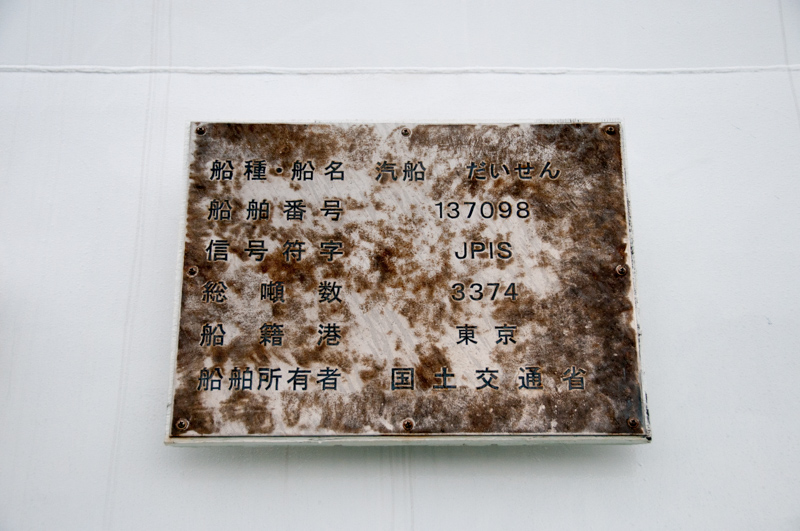 船種・船名 汽船 だいせん
船舶番号 137098
信号符字 JPIS
総噸数 3374
船籍港 東京
船舶所有者 国土交通省